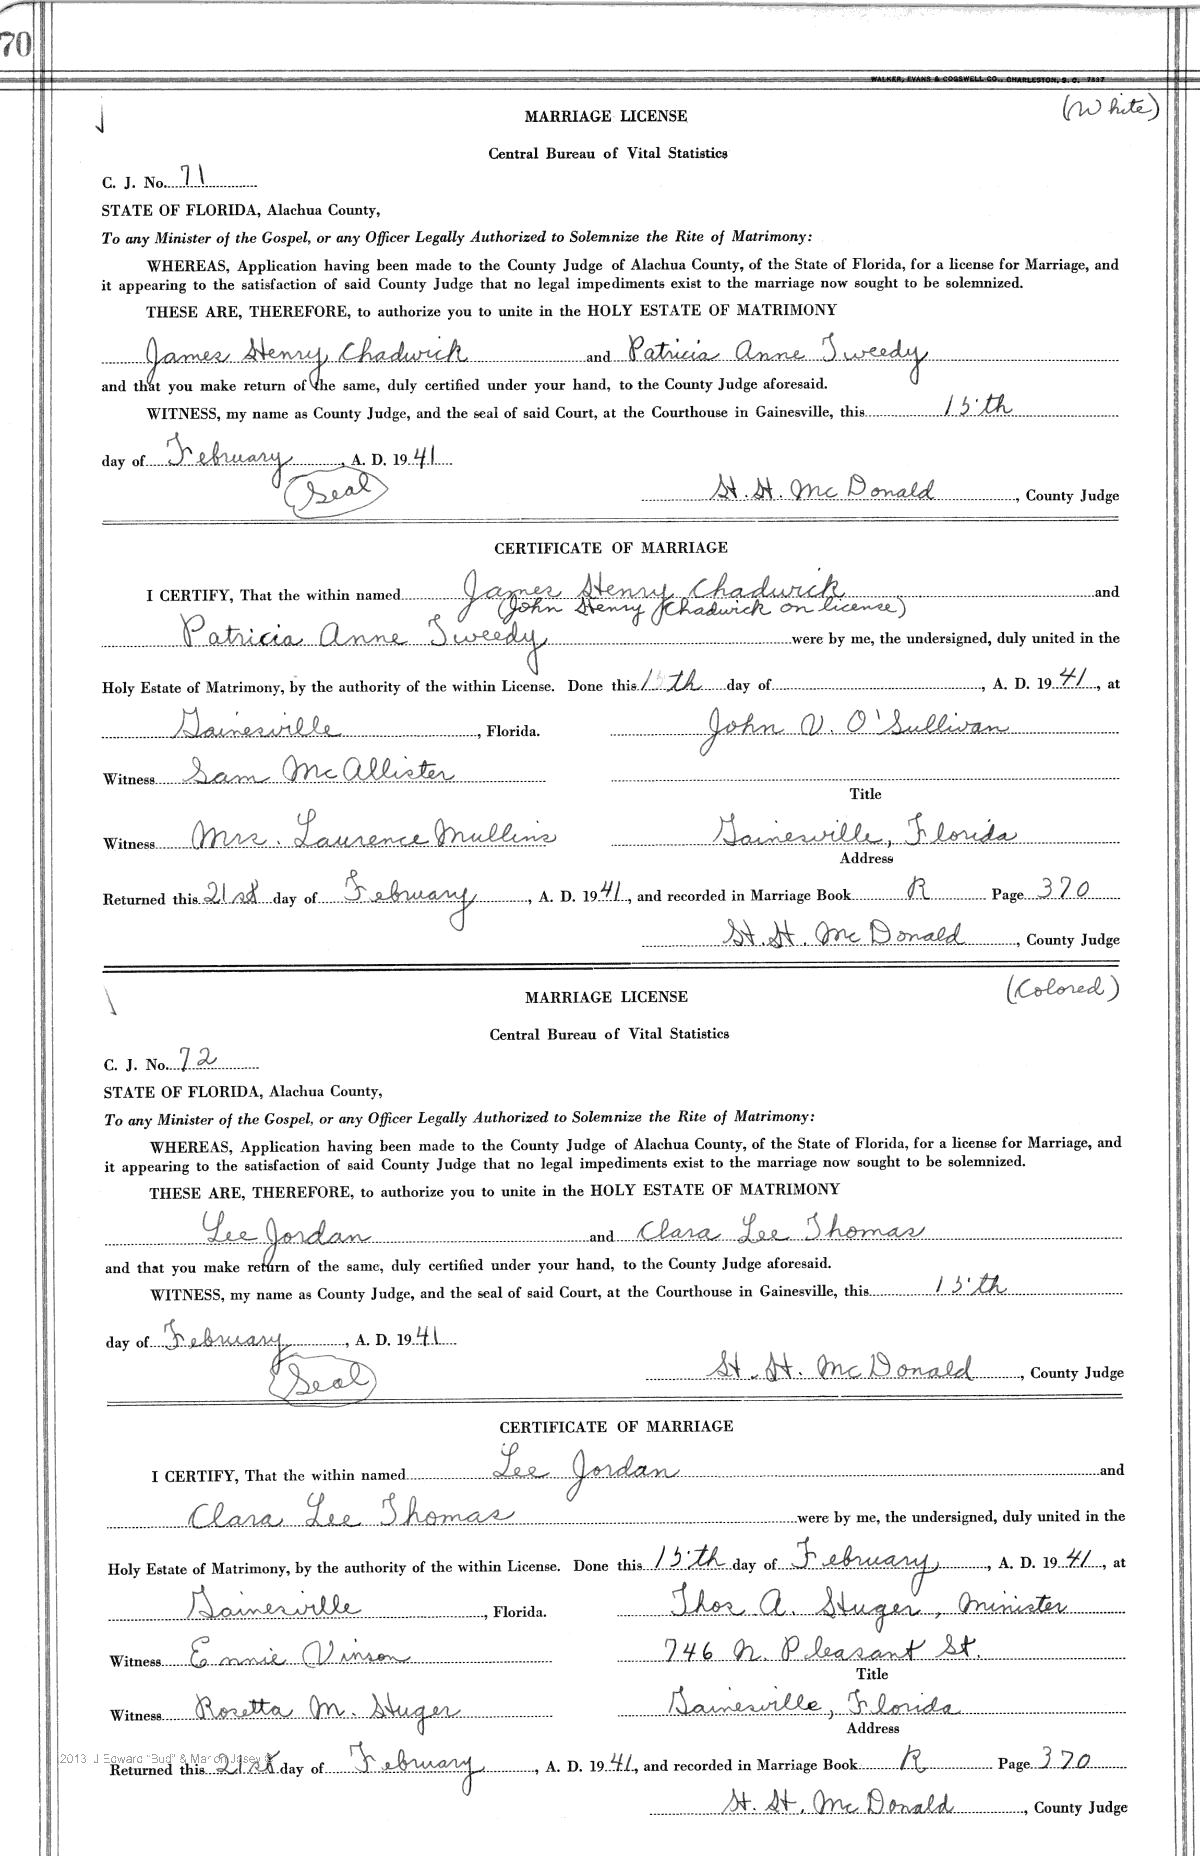 70
WALKER, EVANS & COGSWELL CO., CHARLESTON, S. C. 7837
(White)
MARRIAGE LICENSE
Central Bureau of Vital Statistics
C. J. No. 71
STATE OF FLORIDA, Alachua County,
To any Minister of the Gospel, or any Officer Legally Authorized to Solemnize the Rite of Matrimony:
WHEREAS, Application having been made to the County Judge of Alachua County, of the State of Florida, for a license for Marriage, and
it appearing to the satisfaction of said County Judge that no legal impediments exist to the marriage now sought to be solemnized.
THESE ARE, THEREFORE, to authorize you to unite in the HOLY ESTATE OF MATRIMONY
James Henry Chadwick and Patricia Anne Tweedy
and that you make return of the same, duly certified under your hand, to the County Judge aforesaid.
WITNESS, my name as County Judge, and the seal of said Court, at the Courthouse in Gainesville, this 15th
day of February, A. D. 1941
(Seal)
H. H. McDonald, County Judge
CERTIFICATE OF MARRIAGE
I CERTIFY, That the within named James Henry Chadwick and
(John Henry Chadwick on license)
Patricia Anne Tweedy were by me, the undersigned, duly united in the
Holy Estate of Matrimony, by the authority of the within License. Done this 15th day of , A. D. 1941, at
Gainesville, Florida. John V. O'Sullivan
Witness Sam McAllister
Title
Witness Mrs. Laurence Mullins Gainesville, Florida
Address
Returned this 21st day of February, A. D. 1941, and recorded in Marriage Book R Page 370
H. H. McDonald, County Judge
(Colored)
MARRIAGE LICENSE
Central Bureau of Vital Statistics
C. J. No. 72
STATE OF FLORIDA, Alachua County,
To any Minister of the Gospel, or any Officer Legally Authorized to Solemnize the Rite of Matrimony:
WHEREAS, Application having been made to the County Judge of Alachua County, of the State of Florida, for a license for Marriage, and
it appearing to the satisfaction of said County Judge that no legal impediments exist to the marriage now sought to be solemnized.
THESE ARE, THEREFORE, to authorize you to unite in the HOLY ESTATE OF MATRIMONY
Lee Jordan and Clara Lee Thomas
and that you make return of the same, duly certified under your hand, to the County Judge aforesaid.
WITNESS, my name as County Judge, and the seal of said Court, at the Courthouse in Gainesville, this 15th
day of February, A. D. 1941
(Seal)
H. H. McDonald, County Judge
CERTIFICATE OF MARRIAGE
I CERTIFY, That the within named Lee Jordan and
Clara Lee Thomas were by me, the undersigned, duly united in the
Holy Estate of Matrimony, by the authority of the within License. Done this 15th day of February, A. D. 1941, at
Gainesville, Florida. Thos A. Huger, Minister
Witness Ennie Vinson 746 N. Pleasant St.
Title
Witness Rosetta M. Huger Gainesville, Florida
Address
2013 J Edward "Bud" & Marion Josey
Returned this 21st day of February, A. D. 1941, and recorded in Marriage Book R Page 370
H. H. McDonald, County Judge